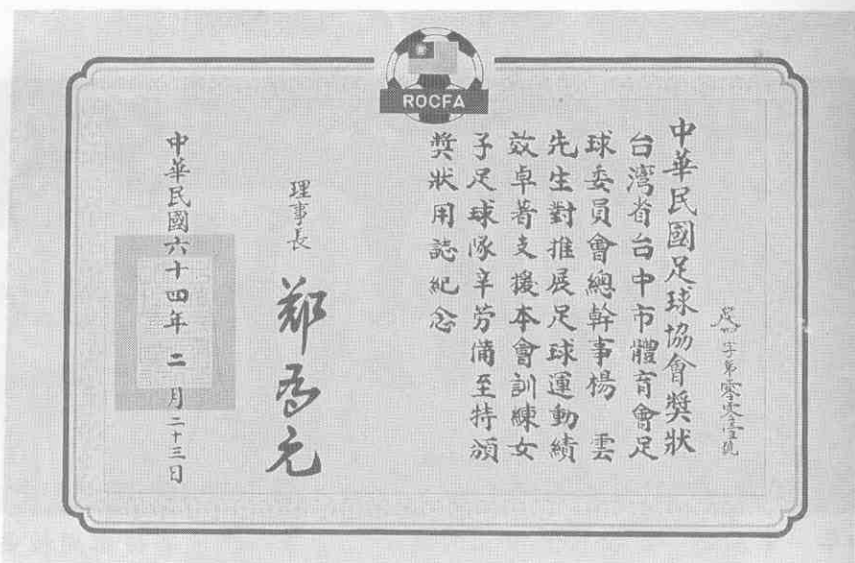 ROCFA
足四字第零零壹號
中華民國足球協會奬狀
台灣省台中市體育會足
球委員會總幹事楊 雲
先生對推展足球運動績
效卓著支援本會訓練女
子足球隊辛劳備至特頒
奬狀用誌紀念
理事長
鄭為元
中華民國六十四年二月二十三日